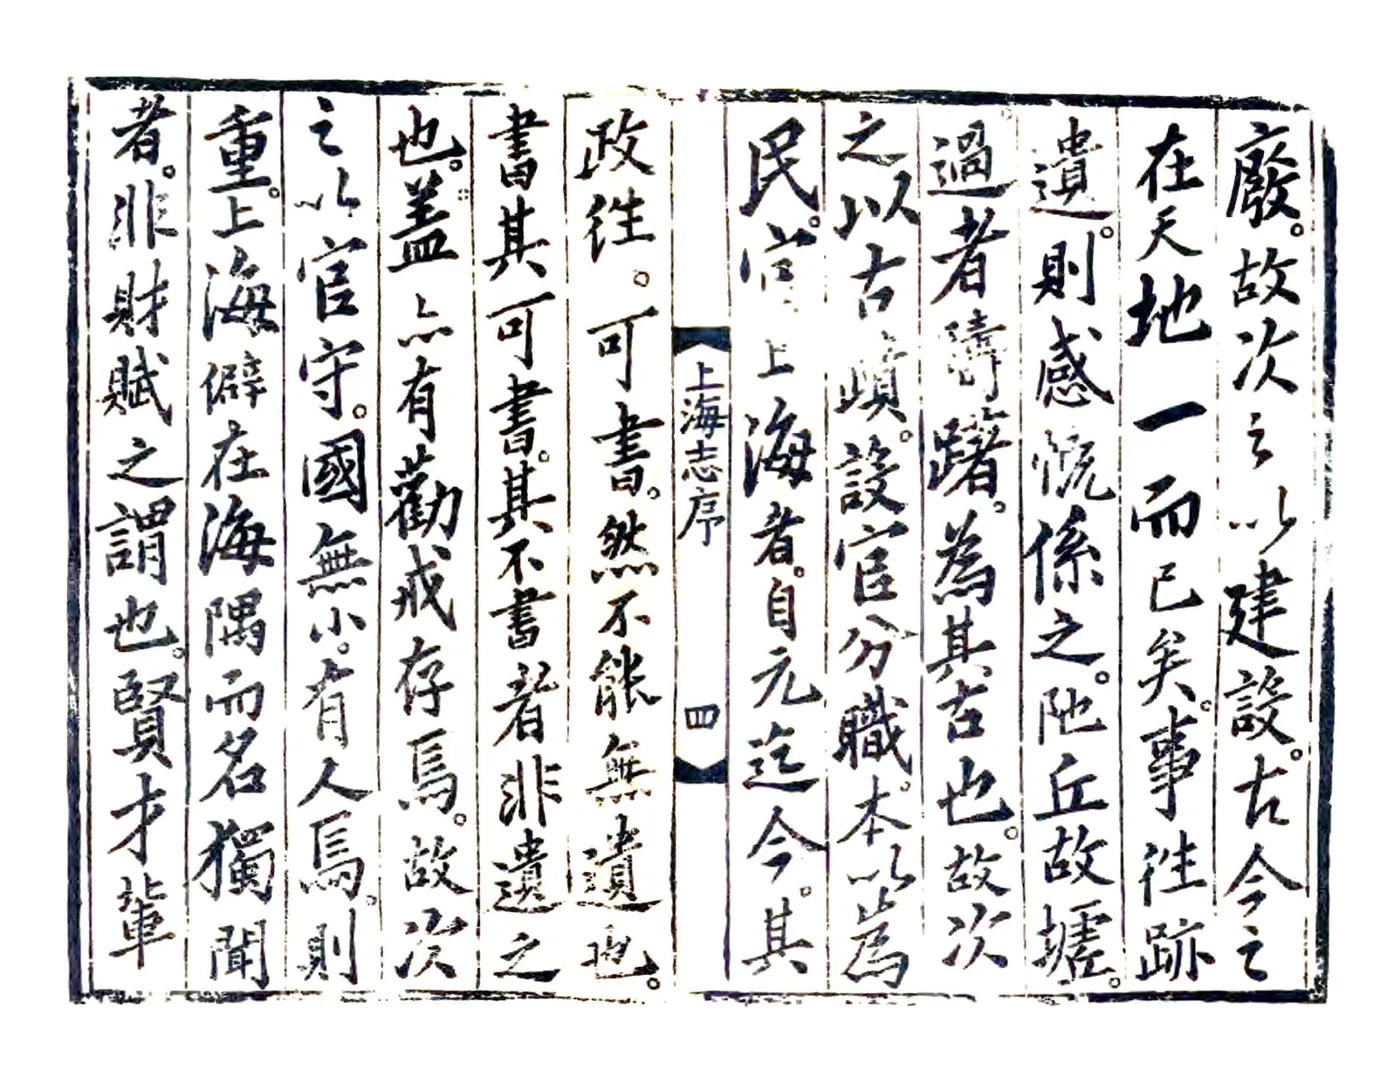 廢。故次之以建設。古今之
在天地一而已矣。事徃跡
遺。則感慨係之。阤丘故墟。
過者躊躇。為其古也。故次
之以古蹟。設官分職。本以為
民。官上海者。自元迄今。其
上海志序
四
政徃。可書。然不能無遺也。
書其可書。其不書者非遺之
也。蓋亦有勸戒存焉。故次
之以官守。國無小。有人焉。則
重。上海僻在海隅而名獨聞
者。非財賦之謂也。賢才輩